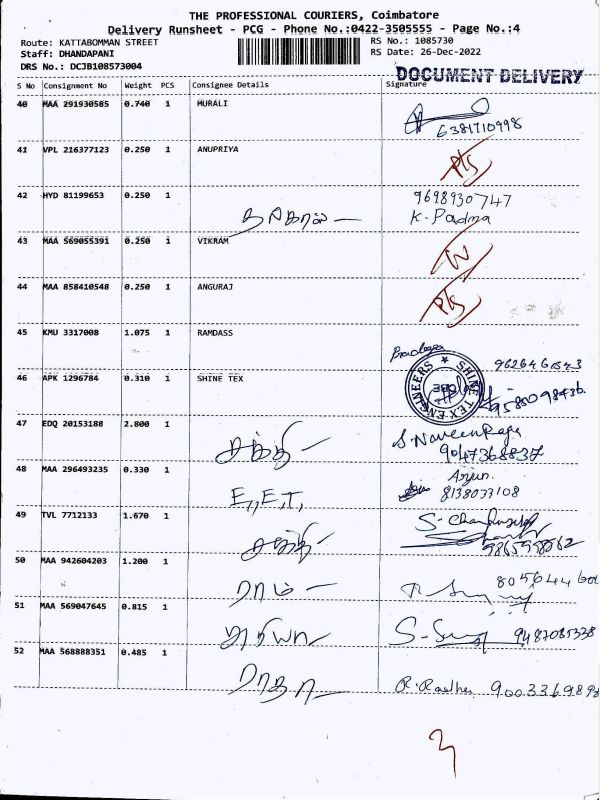 THE PROFESSIONAL COURIERS, Coimbatore
Delivery Runsheet - PCG - Phone No.:0422-3505555 - Page No.:4
Route: KATTABOMMAN STREET
RS No.: 1085730
Staff: DHANDAPANI
RS Date: 26-Dec-2022
DRS No.: DCJB108573004
DOCUMENT DELIVERY
S No Consignment No Weight PCS Consignee Details Signature
40 MAA 291930585 0.740 1 MURALI
6381710998
41 VPL 216377123 0.250 1 ANUPRIYA
P/S
42 HYD 81199653 0.250 1
9698930747
K. Padma
43 MAA 569055391 0.250 1 VIKRAM
44 MAA 858410548 0.250 1 ANGURAJ
P/S
45 KMU 3317008 1.075 1 RAMDASS
46 APK 1296784 0.310 1 SHINE TEX
SHINE TEX ENGINEERS CBE
47 EDQ 20153188 2.800 1 சக்தி
S. NaveenRaja
9047368837
48 MAA 296493235 0.330 1 E, E, T,
Arjun
8138033108
49 TVL 7712133 1.670 1 சக்தி
50 MAA 942604203 1.200 1 ராம்
51 MAA 569047645 0.815 1
9487085338
52 MAA 568888351 0.485 1 ராதா
R. Radha 9003369898